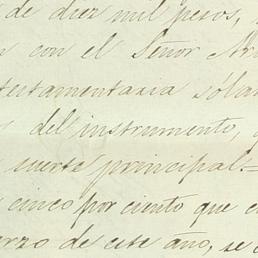 de diez mil pesos,
con el Señor
testamentaria
del instrumento,
suerte principal.=
cinco por ciento que
de este año, se